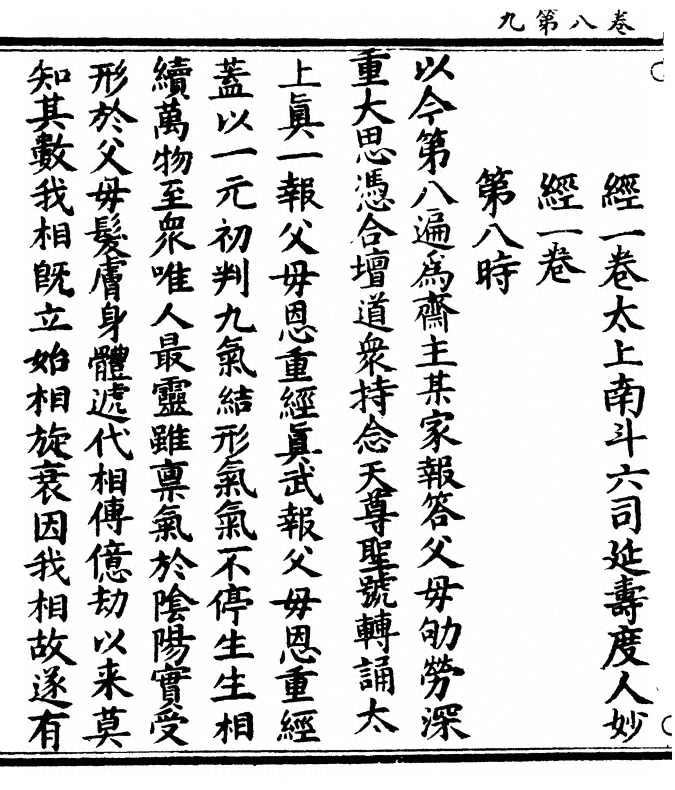 卷八第九
經一卷太上南斗六司延壽度人妙
經一卷
第八時
以今第八遍爲齋主某家報答父母劬勞深
重大思憑合壇道衆持念天尊聖號轉誦太
上眞一報父母恩重經眞武報父母恩重經
蓋以一元初判九氣結形氣氣不停生生相
續萬物至衆唯人最靈雖禀氣於陰陽實受
形於父母髮膚身體遞代相傳億劫以来莫
知其數我相旣立始相旋衰因我相故遂有